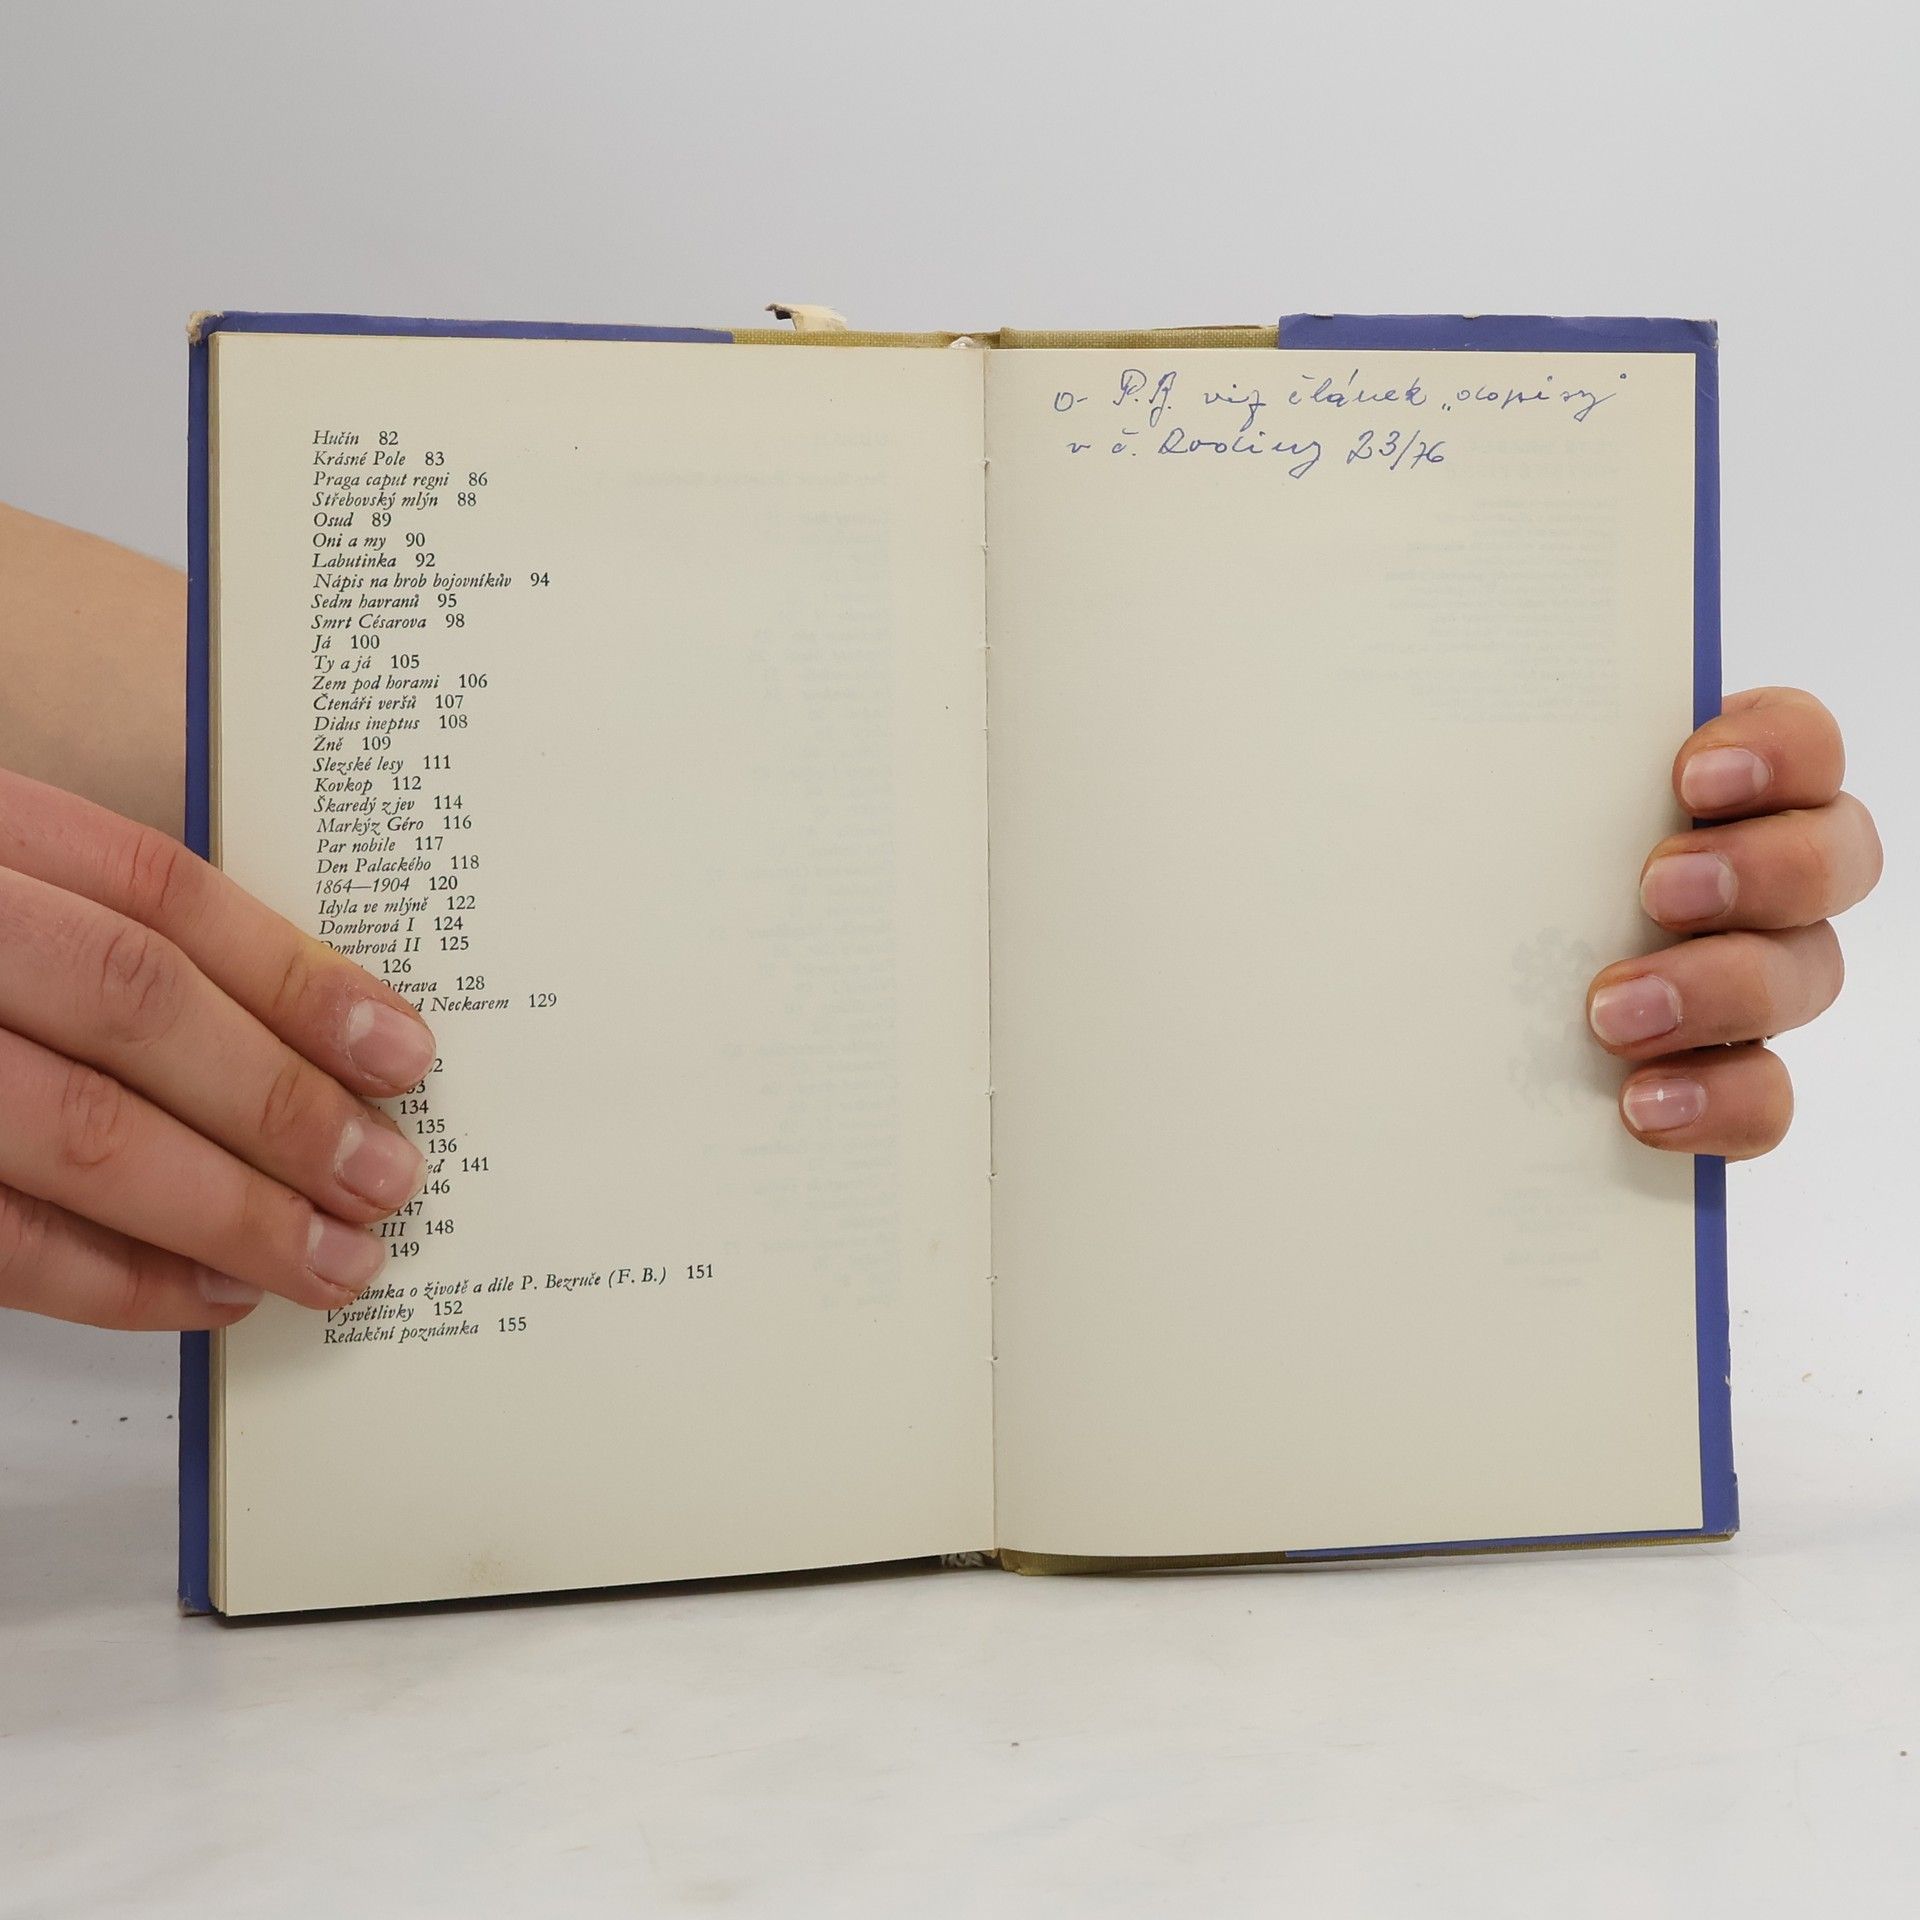 Hučín 82
Krásné Pole 83
Praga caput regni 86
Střebovský mlýn 88
Osud 89
Oni a my 90
Labutinka 92
Nápis na hrob bojovníkův 94
Sedm havranů 95
Smrt Césarova 98
Já 100
Ty a já 105
Zem pod horami 106
Čtenáři veršů 107
Didus ineptus 108
Žně 109
Slezské lesy 111
Kovkop 112
Škaredý zjev 114
Markýz Géro 116
Par nobile 117
Den Palackého 118
1864—1904 120
Idyla ve mlýně 122
Dombrová I 124
Dombrová II 125
126
Ostrava 128
Neckarem 129
134
135
136
141
146
147
III 148
149
o životě a díle P. Bezruče (F. B.) 151
Vysvětlivky 152
Redakční poznámka 155
o P.B. viz článek „dopisy"
v č. Rodiny 23/76